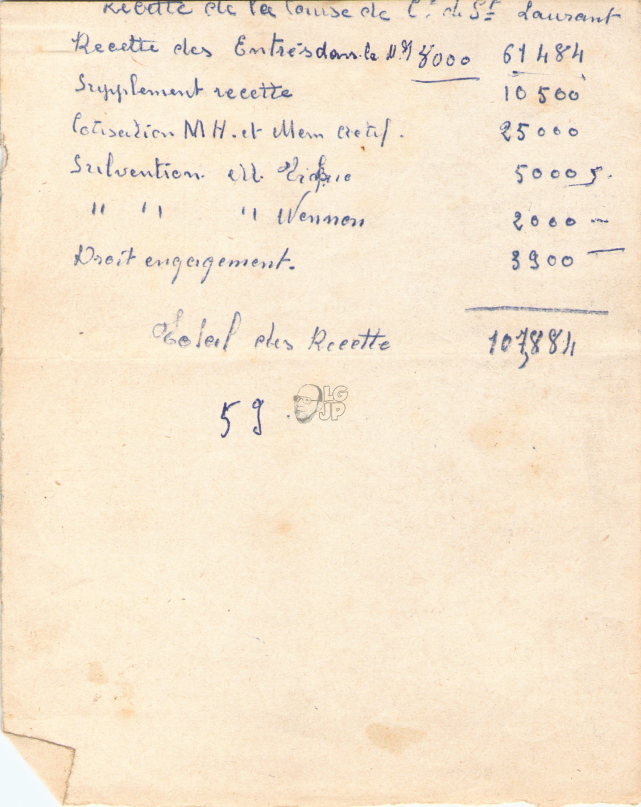 Recette de la Course de C. de St Laurant
Recette des Entrés dans le 8000 61484
Supplement recette 10500
Cotisation M H. et Mem 25000
Sulvention 5000
" " " Wennon 2000 -
Droit engagement. 3900
Total des Recette 107884
59
LG
JP